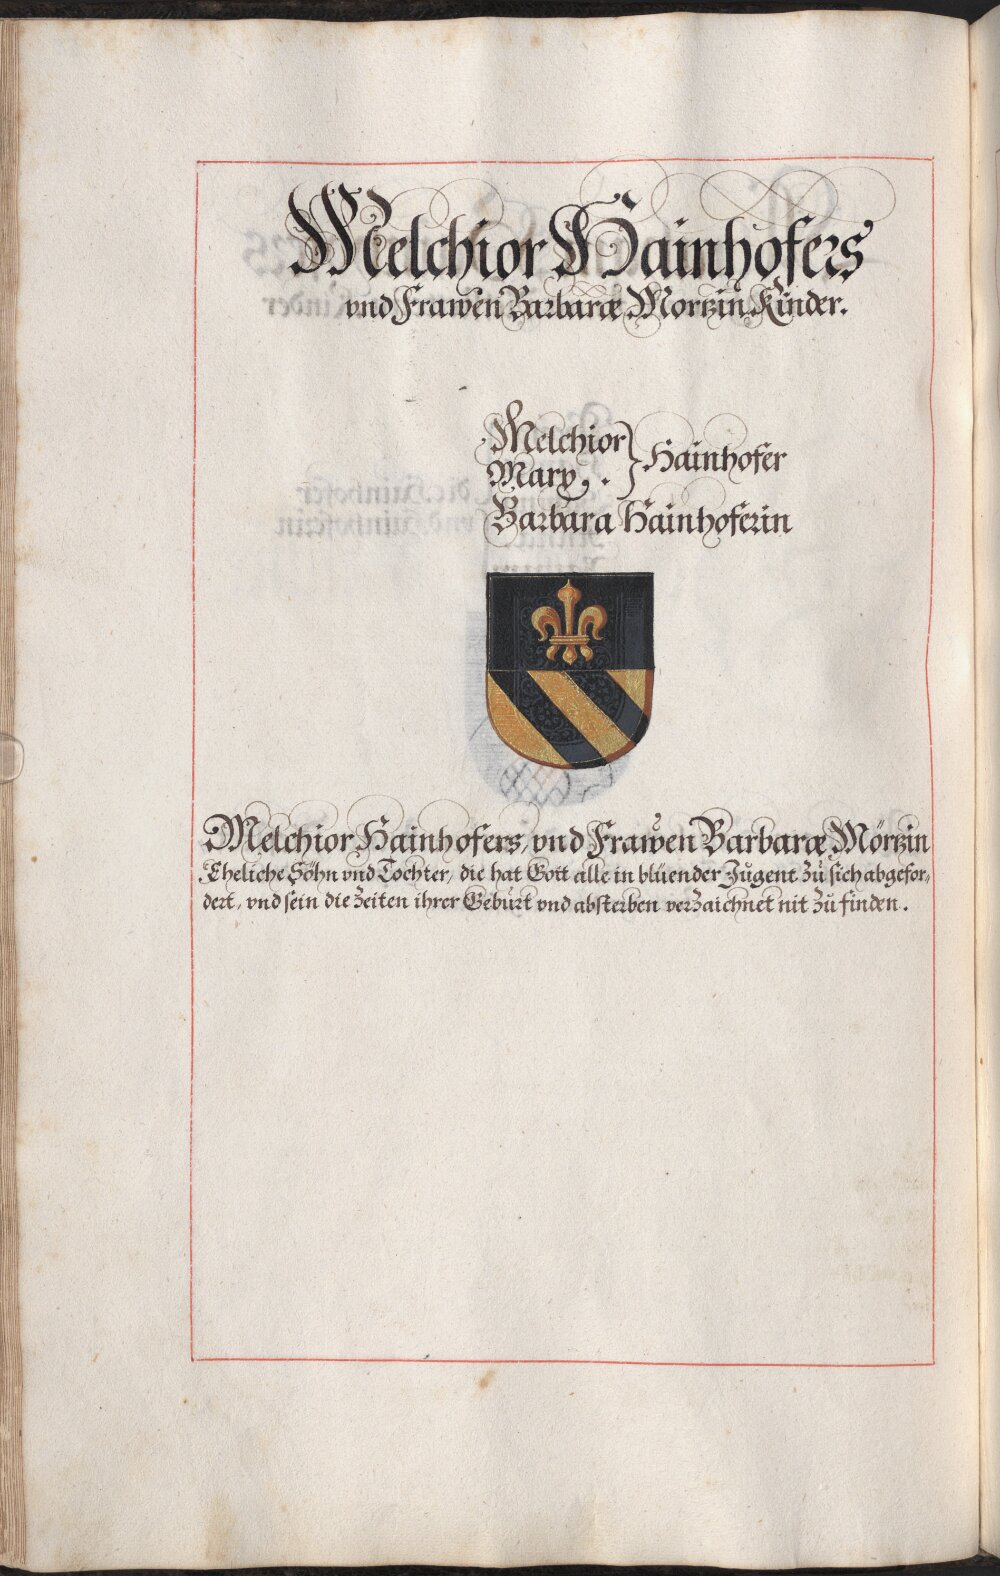 Melchior Hainhofers
vnd Frawen Barbaræ Mörtzin Kinder.
Melchior
Marx.
Hainhofer
Barbara Hainhoferin
Melchior Hainhofers, vnd Frawen Barbaræ Mörtzin
Eheliche Söhn vnd Tochter, die hat Gott alle in blüender Jugent zu sich abgefor-
dert, vnd sein die zeiten ihrer Geburt vnd absterben verzaichnet nit zu finden.